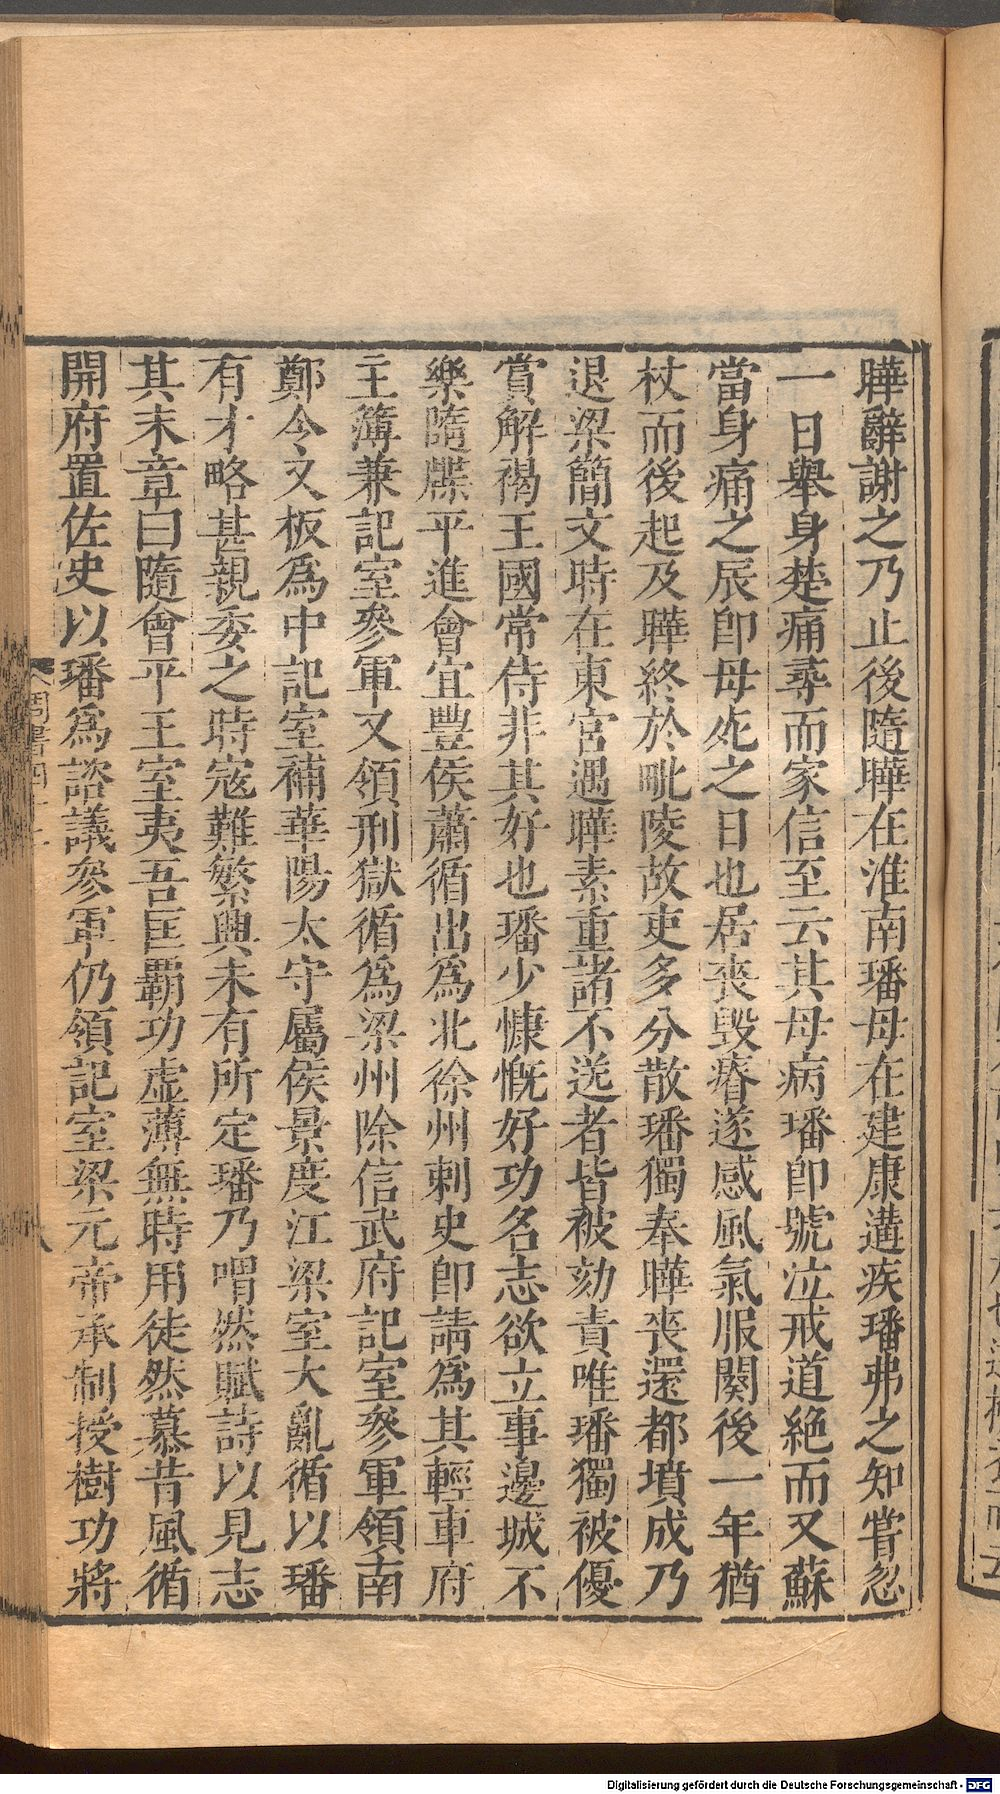 曄辭謝之乃止後隨曄在淮南璠母在建康遘疾璠弗之知嘗忽
一日舉身楚痛尋而家信至云其母病璠卽號泣戒道絶而又蘇
當身痛之辰卽母死之日也居喪毀瘠遂感風氣服闋後一年猶
杖而後起及曄終於毗陵故吏多分散璠獨奉曄喪還都墳成乃
退梁簡文時在東宮遇曄素重諸不送者皆被劾責唯璠獨被優
賞解褐王國常侍非其好也璠少慷慨好功名志欲立事邊城不
樂隨牒平進會宜豐侯蕭循出爲北徐州刺史卽請爲其輕車府
主簿兼記室參軍又領刑獄循爲梁州除信武府記室參軍領南
鄭令又板爲中記室補華陽太守屬侯景度江梁室大亂循以璠
有才略甚親委之時寇難繁興未有所定璠乃喟然賦詩以見志
其末章曰隨會平王室夷吾匡覇功虛薄無時用徒然慕昔風循
開府置佐史以璠爲諮議參軍仍領記室梁元帝承制授樹功將
周書四十二
八
Digitalisierung gefördert durch die Deutsche Forschungsgemeinschaft - DFG